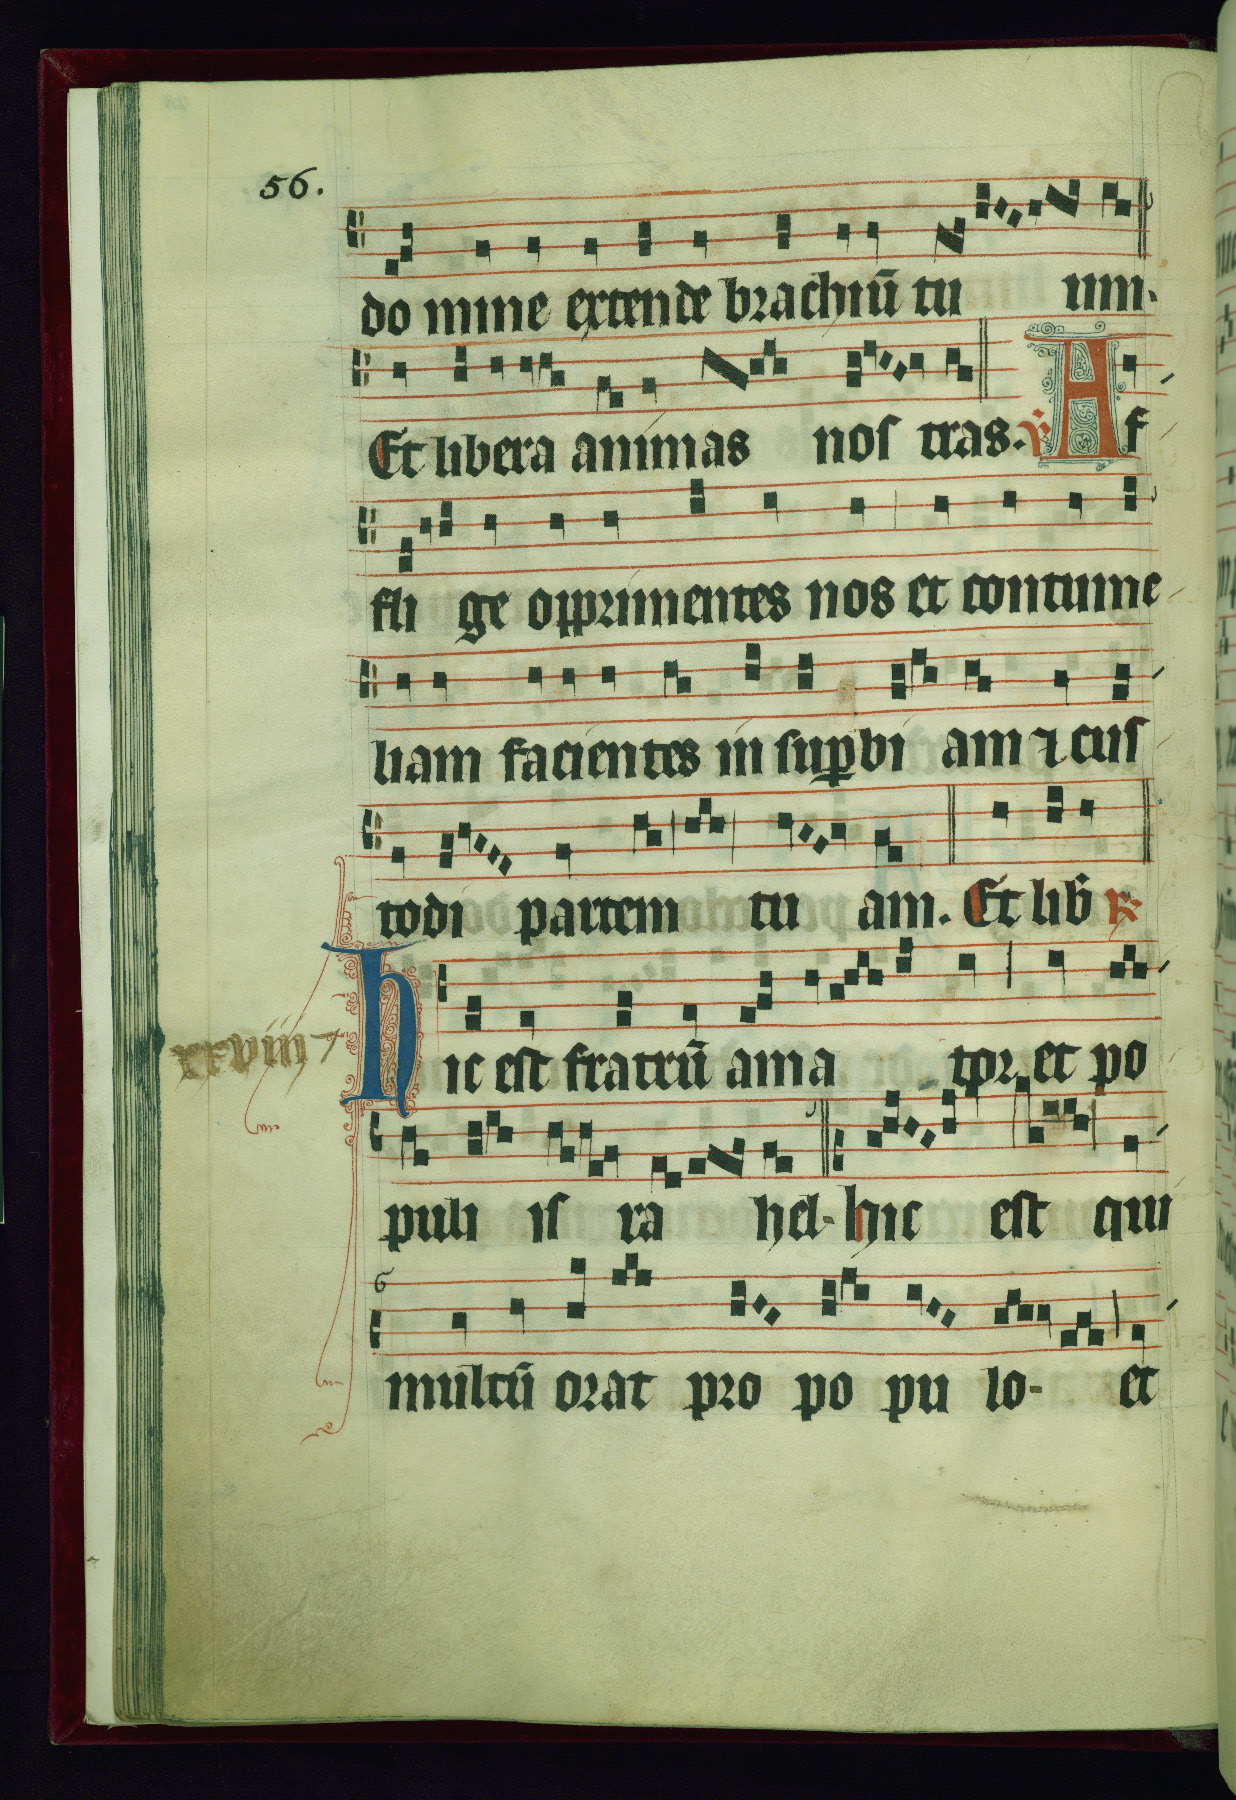 56.
do mine extende brachiū tu um.
Et libera animas nos tras. ℣ Af
fli ge opprimentes nos et contume
liam facientes in suꝑbi am ⁊ cus
todi partem tu am. Et lib̄ ℟
xxviii
Hic est fratrū ama tor et po
puli is ra hel. hic est qui
multū orat pro po pu lo. et